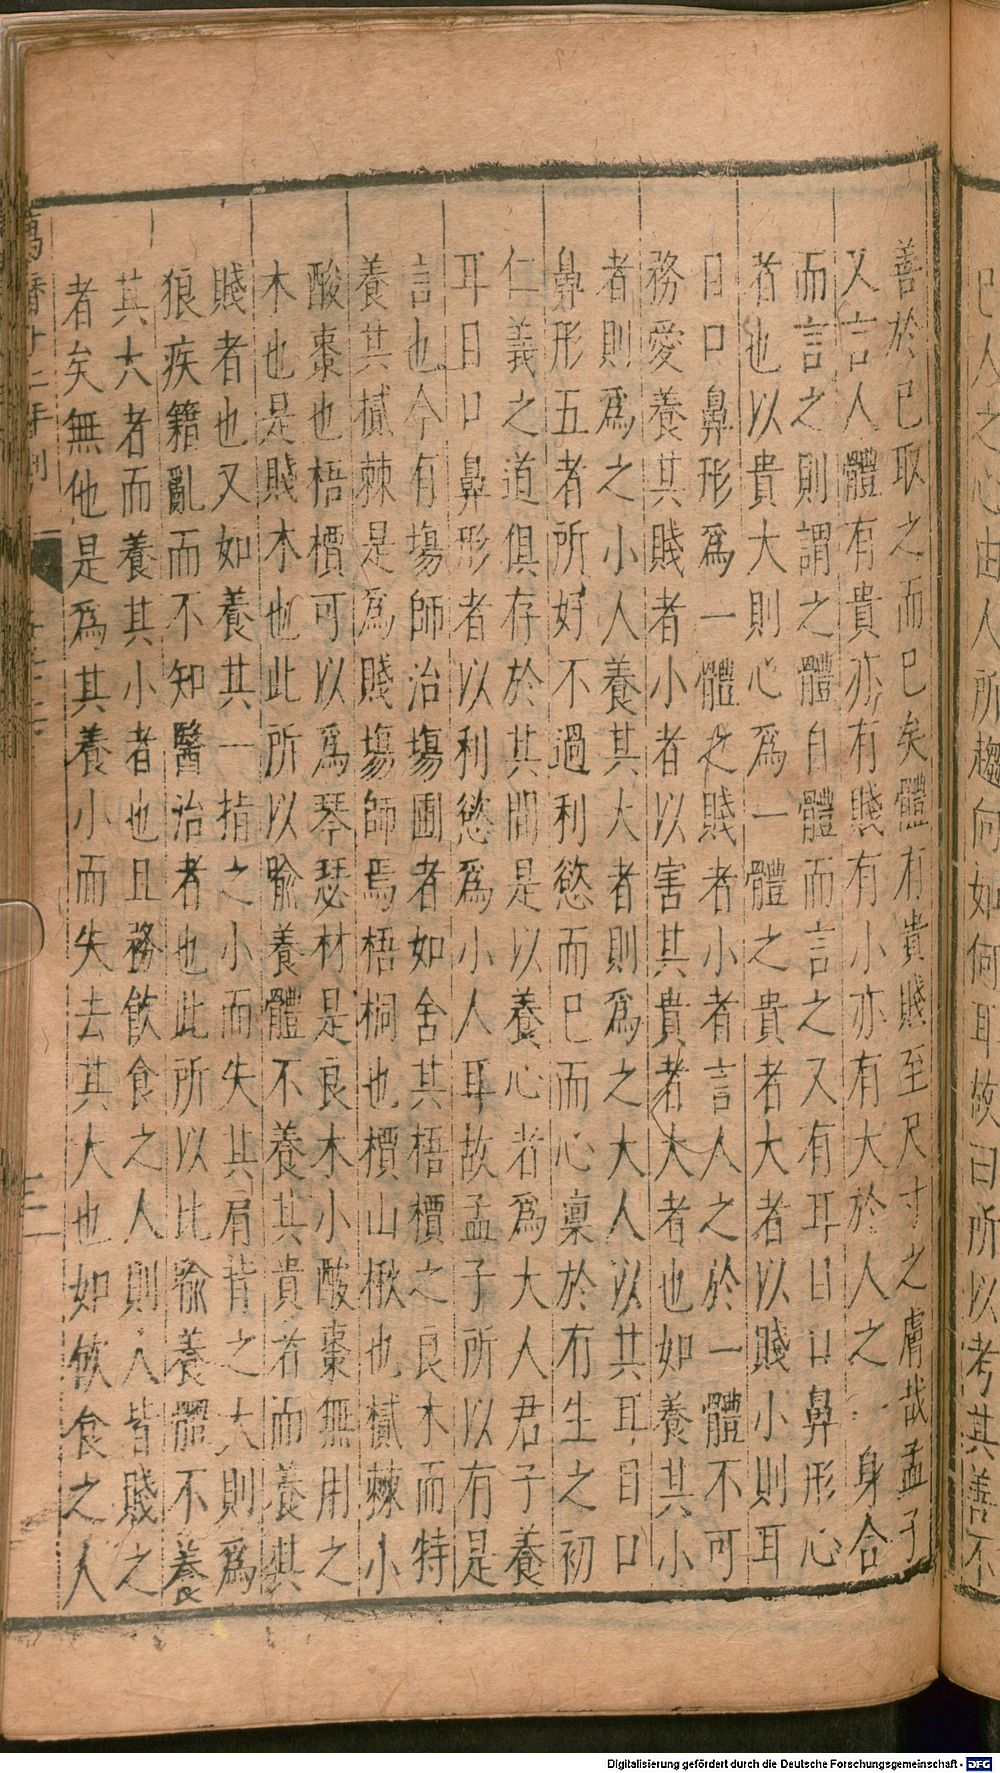 巳人之心由人所趨向如何耳故曰所以考其善不
善於巳取之而巳矣體有貴賤至尺寸之膚哉孟子
又言人體有貴亦有賤有小亦有大於人之一身合
而言之則謂之體自體而言之又有耳目口鼻形心
者也以貴大則心爲一體之貴者大者以賤小則耳
目口鼻形爲一體之賤者小者言人之於一體不可
務愛養其賤者小者以害其貴者大者也如養其小
者則爲之小人養其大者則爲之大人以其耳目口
鼻形五者所好不過利慾而巳而心稟於有生之初
仁義之道俱存於其間是以養心者爲大人君子養
耳目口鼻形者以利慾爲小人耳故孟子所以有是
言也今有塲師治塲圃者如舍其梧檟之良木而特
養其樲棘是爲賤塲師焉梧桐也檟山楸也樲棘小
酸棗也梧檟可以爲琴瑟材是良木小酸棗無用之
木也是賤木也此所以喻養體不養其貴者而養其
賤者也又如養其一指之小而失其肩背之大則爲
狼疾籍亂而不知醫治者也此所以比喻養體不養
其大者而養其小者也且務飲食之人則人皆賤之
者矣無他是爲其養小而失去其大也如飲食之人
萬曆十二年刊
三
Digitalisierung gefördert durch die Deutsche Forschungsgemeinschaft - DFG